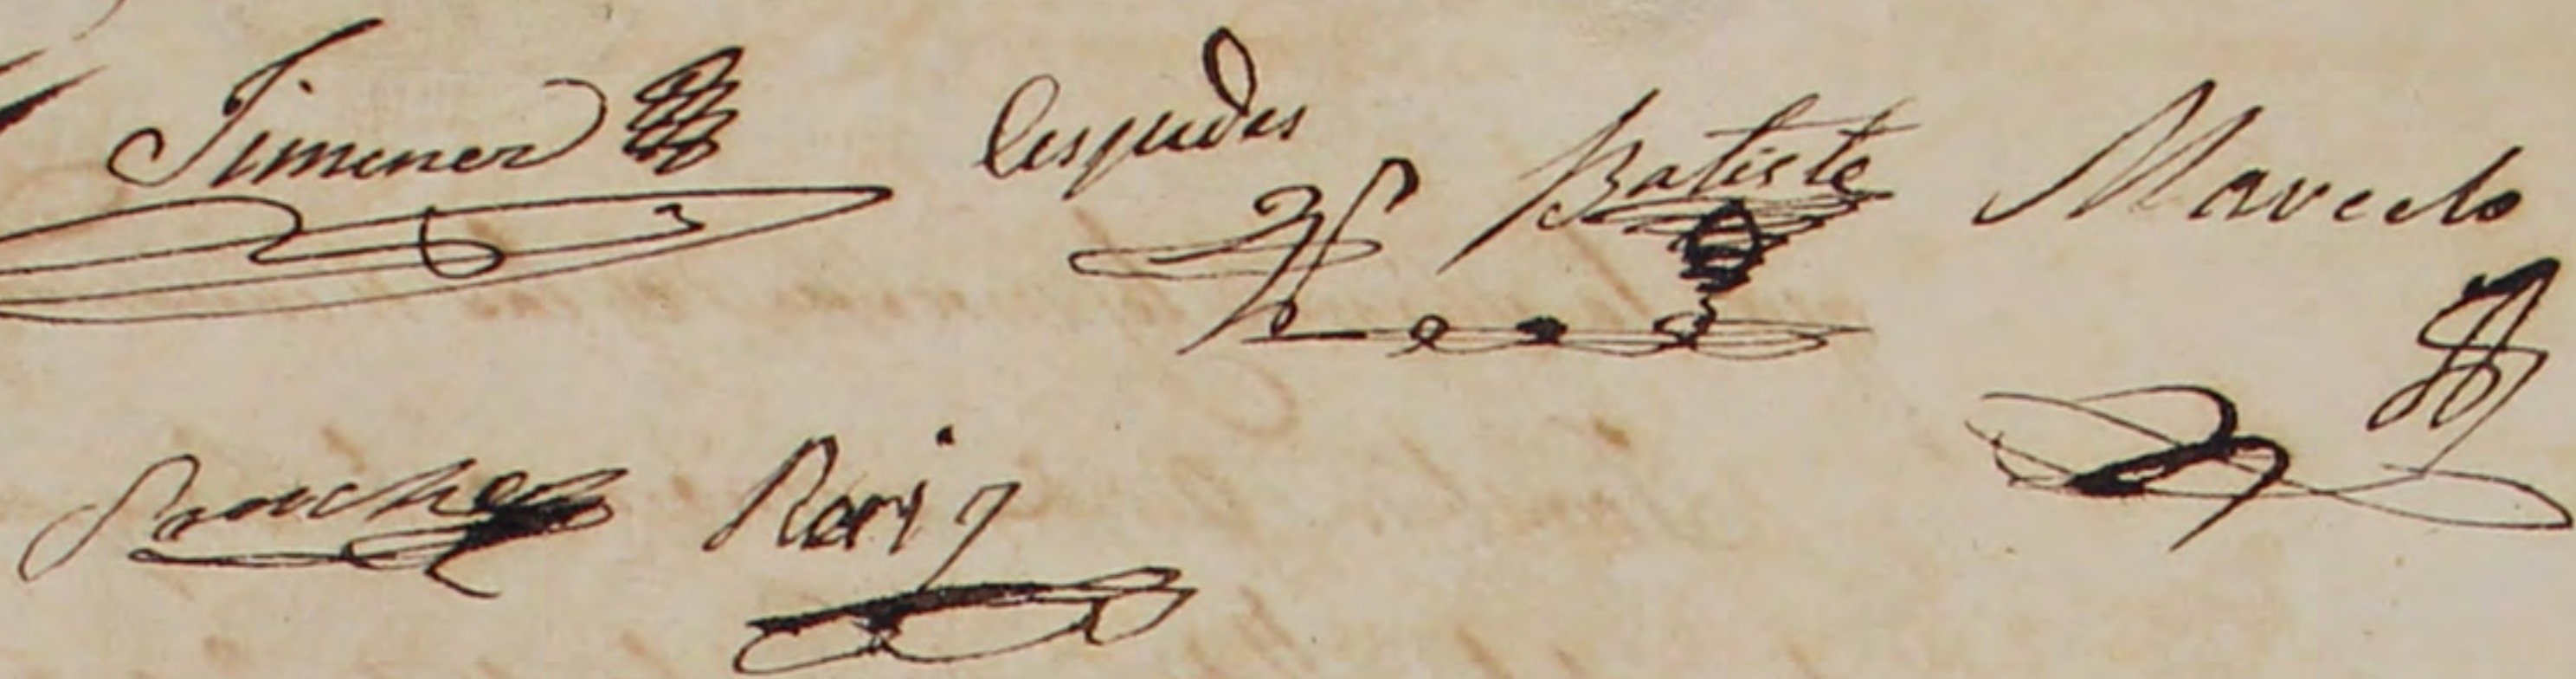 Jimenez Cespedes Batiste Marcelo
Sanchez Roriz